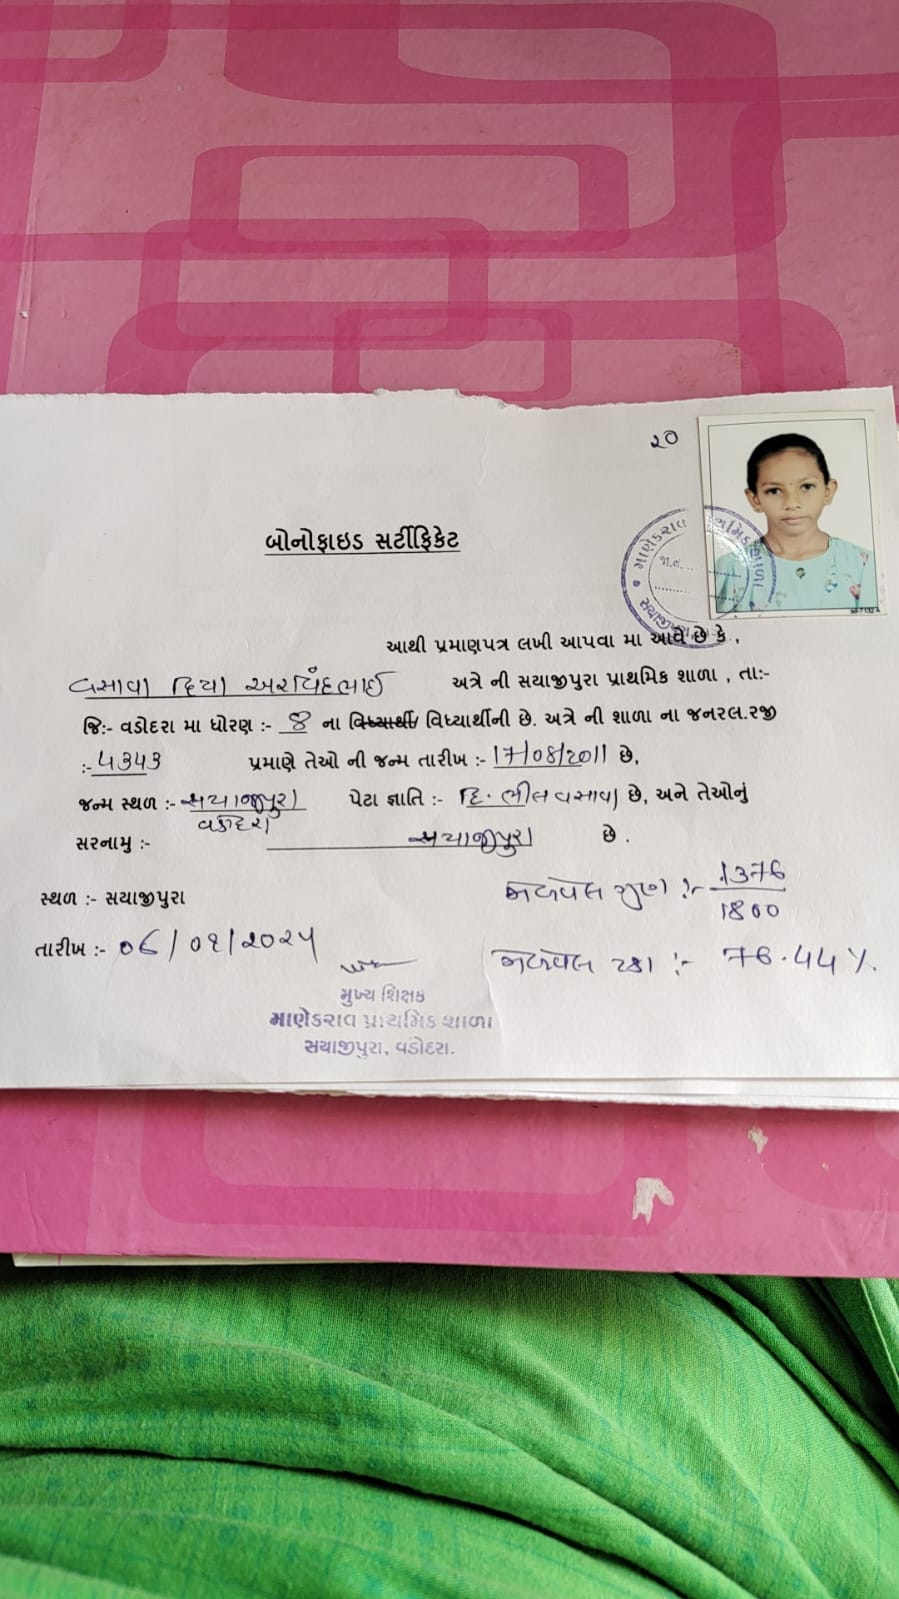 ૨૦
બોનોફાઇડ સર્ટીફિકેટ
માણેકરાવ પ્રાથમિક શાળા
જા.નં.
સયાજીપુરા
આથી પ્રમાણપત્ર લખી આપવા મા આવે છે કે ,
વસાવા દિયા અરવિંદભાઈ અત્રે ની સયાજીપુરા પ્રાથમિક શાળા , તાઃ-
જિઃ- વડોદરા મા ધોરણ :- 8 ના વિધ્યાર્થી/ વિધ્યાર્થીની છે. અત્રે ની શાળા ના જનરલ.રજી
:- ૫૩૫૩ પ્રમાણે તેઓ ની જન્મ તારીખ :- 17/08/2011 છે,
જન્મ સ્થળ :- સયાજીપુરા પેટા જ્ઞાતિ :- હિ. ભીલ વસાવા છે, અને તેઓનું
વડોદરા
સરનામુ :- સયાજીપુરા છે .
સ્થળ :- સયાજીપુરા
મેળવેલ ગુણ :- 1376
1800
તારીખ :- ૦6/૦૧/૨૦૨૫
મેળવેલ ટકા :- 76.44 %.
મુખ્ય શિક્ષક
માણેકરાવ પ્રાથમિક શાળા
સયાજીપુરા, વડોદરા.